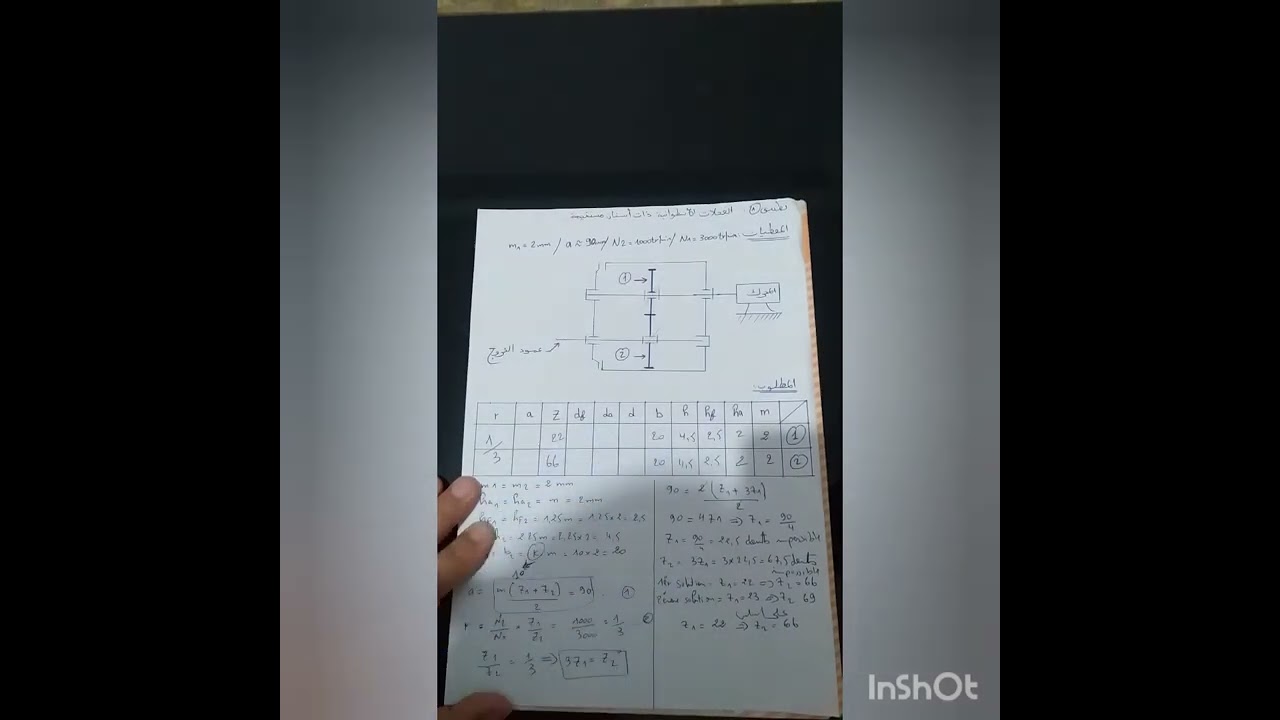 تطبيق ①: العجلات الأسطوانية ذات أسنان مستقيمة
المعطيات: m1 = 2 mm / a ≈ 90mm / N2 = 1000tr/min / N1 = 3000tr/min
①
المحرك
②
عمود الخروج
المطلوب:
r a Z df da d b h hf ha m
1/3 22 20 4,5 2,5 2 2 ①
66 20 4,5 2,5 2 2 ②
m1 = m2 = 2 mm
ha1 = ha2 = m = 2mm
hf1 = hf2 = 1,25m = 1,25x2 = 2,5
h2 = 2,25m = 2,25x2 = 4,5
b2 = k m = 10x2 = 20
10
a = m(z1+z2)/2 = 90 ①
r = N2/N1 = Z1/Z2 = 1000/3000 = 1/3 ②
Z1/Z2 = 1/3 => 3Z1 = Z2
90 = 2(Z1 + 3Z1)/2
90 = 4Z1 => Z1 = 90/4
Z1 = 90/4 = 22,5 dents impossible
Z2 = 3Z1 = 3x22,5 = 67,5 dents
impossible
1èr solution = Z1 = 22 => Z2 = 66
2éme solution = Z1 = 23 => Z2 69
على أساس
Z1 = 22 => Z2 = 66
InShOt